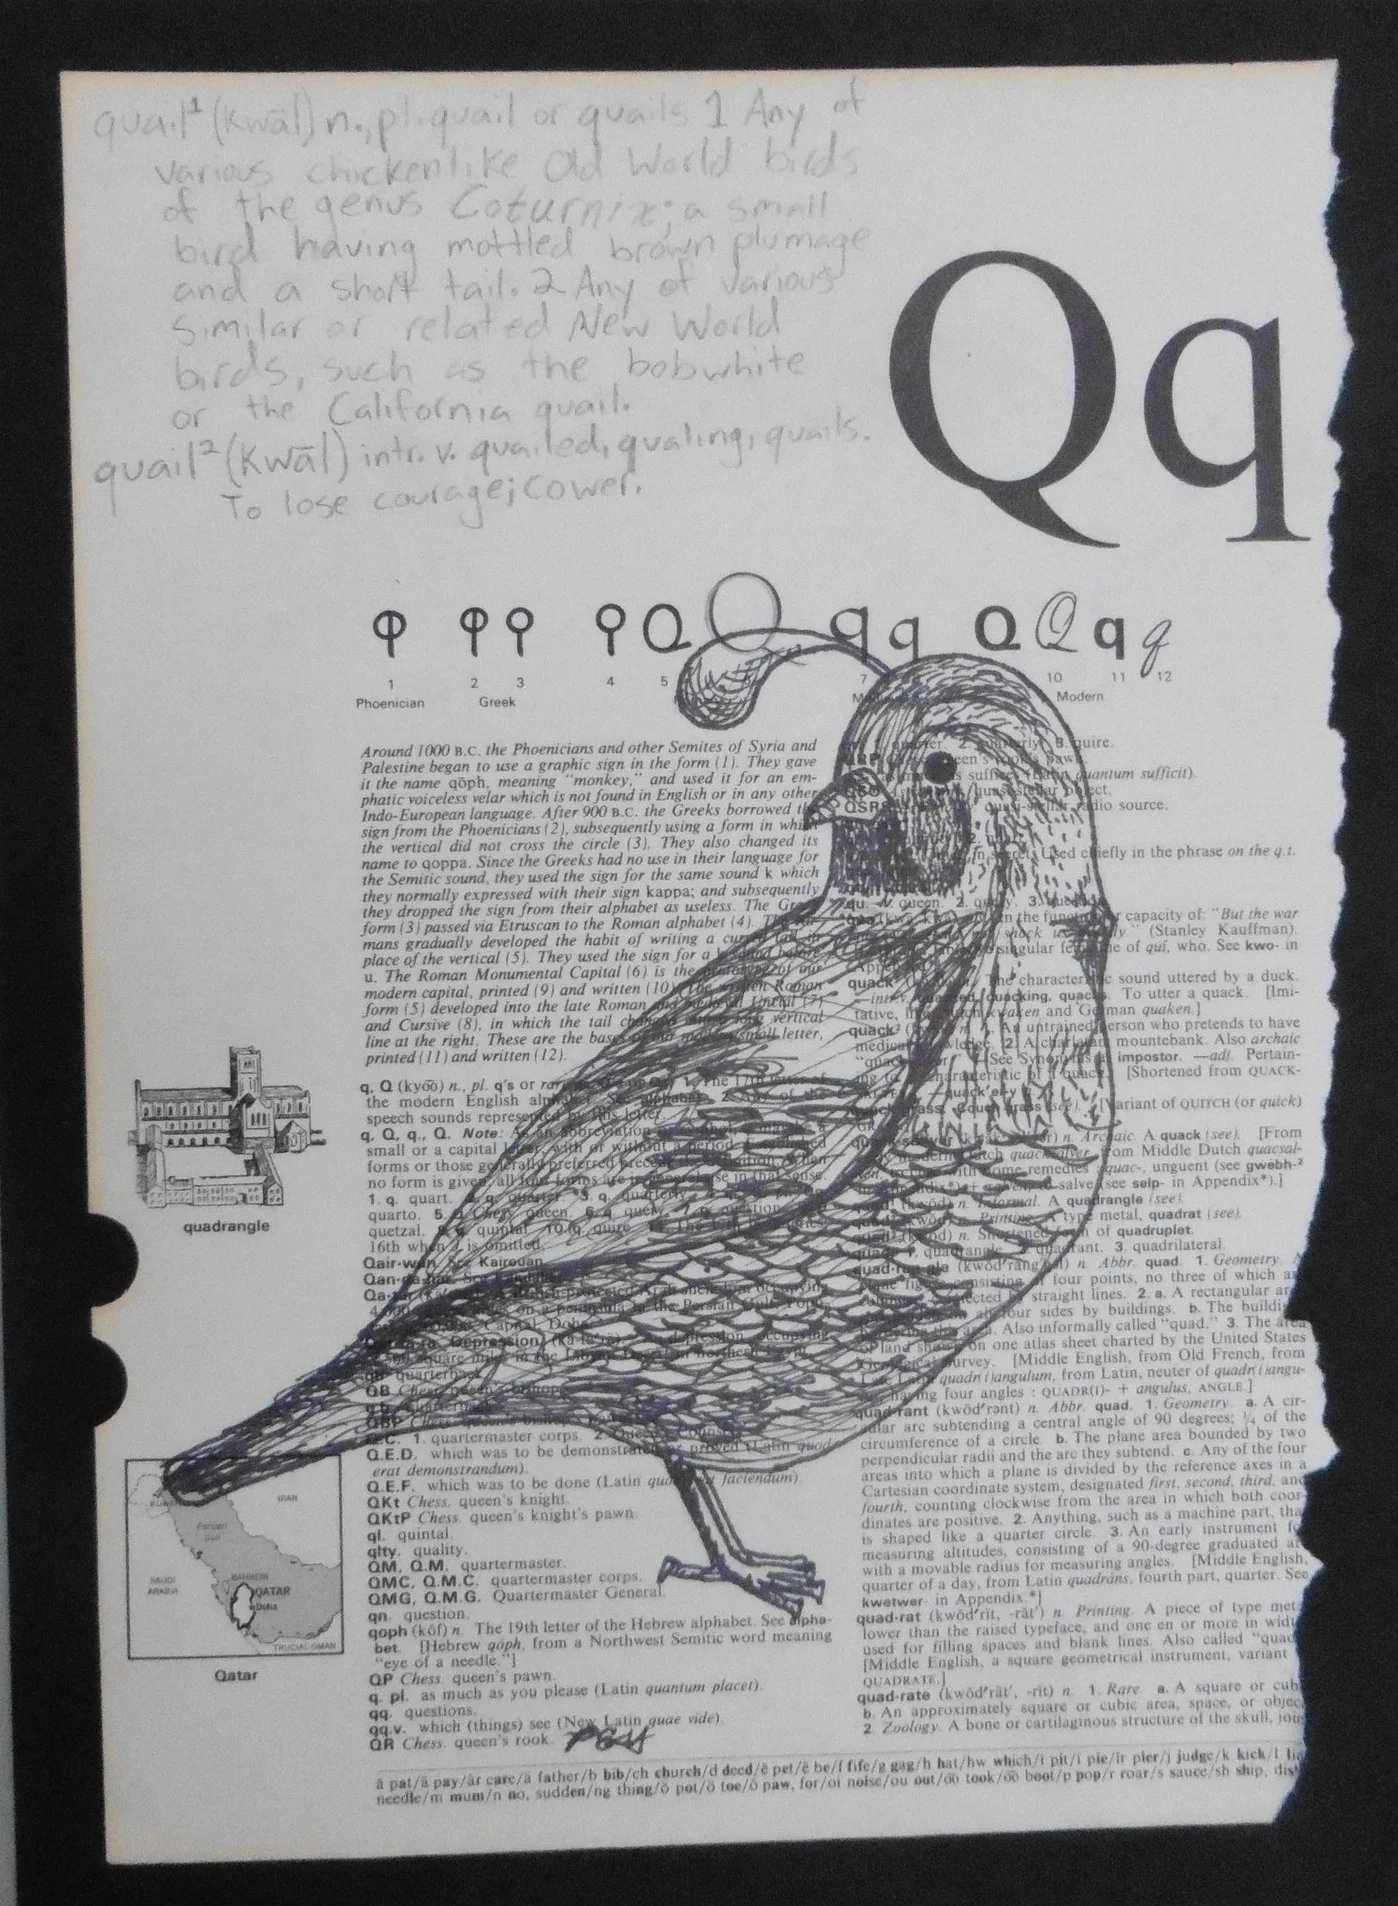 quail¹ (kwāl) n., pl. quail or quails 1 Any of
various chickenlike Old World birds
of the genus Coturnix; a small
bird having mottled brown plumage
and a short tail. 2 Any of various
similar or related New World
birds, such as the bobwhite
or the California quail.
quail² (kwāl) intr. v. quailed, qualing, quails.
To lose courage; cower.
Qq
1 2 3 4 5 7 10 11 12
Phoenician Greek Modern
Around 1000 B.C. the Phoenicians and other Semites of Syria and
Palestine began to use a graphic sign in the form (1). They gave
it the name qōph, meaning "monkey," and used it for an em-
phatic voiceless velar which is not found in English or in any other
Indo-European language. After 900 B.C. the Greeks borrowed the
sign from the Phoenicians (2), subsequently using a form in which
the vertical did not cross the circle (3). They also changed its
name to qoppa. Since the Greeks had no use in their language for
the Semitic sound, they used the sign for the same sound k which
they normally expressed with their sign kappa; and subsequently
they dropped the sign from their alphabet as useless. The
form (3) passed via Etruscan to the Roman alphabet (4).
mans gradually developed the habit of writing a
place of the vertical (5). They used the sign for a
u. The Roman Monumental Capital (6) is the prototype of our
modern capital, printed (9) and written (10). The written Roman
form (5) developed into the late Roman and medieval Uncial (7)
and Cursive (8), in which the tail vertical
line at the right. These are the small letter,
printed (11) and written (12).
q, Q (kyōō) n., pl. q's or
the modern English alphabet.
speech sounds represented by this letter.
q, Q, q., Q. Note: As an abbreviation
small or a capital letter, with or without a period
forms or those generally preferred
no form is given, all four forms are in that sense.
1. q. quart.
quarto. 5. queen. 6. q. query.
quetzal. quintal. 10. q. quire.
16th when J is omitted.
Qair·wan. See Kairouan.
Persian Gulf.
Capital, Doha.
Depression
qb quarterback.
QB Chess. queen's bishop.
QBP Chess.
1. quartermaster corps.
Q.E.D. which was to be demonstrated or proved (Latin quod
erat demonstrandum).
Q.E.F. which was to be done (Latin faciendum).
QKt Chess. queen's knight.
QKtP Chess. queen's knight's pawn.
ql. quintal.
qlty. quality.
QM, Q.M. quartermaster.
QMC, Q.M.C. quartermaster corps.
QMG, Q.M.G. Quartermaster General.
qn. question.
qoph (kôf) n. The 19th letter of the Hebrew alphabet. See alpha-
bet. [Hebrew qōph, from a Northwest Semitic word meaning
"eye of a needle."]
QP Chess. queen's pawn.
q. pl. as much as you please (Latin quantum placet).
qq. questions.
qq.v. which (things) see (New Latin quae vide).
QR Chess. queen's rook.
1. quarter. 2. quarterly. 3. quire.
QRP queen's rook's pawn.
suffices (Latin quantum sufficit).
QSO quasi-stellar object.
QSRS quasi-stellar radio source.
Used chiefly in the phrase on the q.t.
qu. queen. 2. query. 3.
in the function or capacity of: "But the war
shock (Stanley Kauffman).
singular feminine of quī, who. See kwo- in
quack The characteristic sound uttered by a duck.
—intr.v. quacked, quacking, quacks. To utter a quack. [Imi-
tative, kwaken and German quaken.]
quack² An untrained person who pretends to have
2. A charlatan mountebank. Also archaic
See Synonyms at impostor. —adj. Pertain-
characteristic of [Shortened from QUACK-
(see). [Variant of QUITCH (or quick)
GR
n. Archaic. A quack (see). [From
modern Dutch quacksalver, from Middle Dutch quacsal-
remedies quac-, unguent (see gwebh-²
salve (see selp- in Appendix*).]
Informal. A quadrangle (see).
Printing. A type metal, quadrat (see).
n. Shortened form of quadruplet.
quad. 1. quadrangle. 2. quadrant. 3. quadrilateral.
quad·ran·gle (kwŏd'răng'gəl) n. Abbr. quad. 1. Geometry.
plane figure consisting of four points, no three of which
connected by straight lines. 2. a. A rectangular
four sides by buildings. b. The
Also informally called "quad." 3. The area
of land shown on one atlas sheet charted by the United States
Geological Survey. [Middle English, from Old French, from
Latin quadr(i)angulum, from Latin, neuter of quadr(i)angu-
having four angles : QUADR(I)- + angulus, ANGLE.]
quad·rant (kwŏd'rənt) n. Abbr. quad. 1. Geometry. a. A cir-
cular arc subtending a central angle of 90 degrees; ¼ of the
circumference of a circle. b. The plane area bounded by two
perpendicular radii and the arc they subtend. c. Any of the four
areas into which a plane is divided by the reference axes in a
Cartesian coordinate system, designated first, second, third, and
fourth, counting clockwise from the area in which both coor-
dinates are positive. 2. Anything, such as a machine part,
is shaped like a quarter circle. 3. An early instrument
measuring altitudes, consisting of a 90-degree graduated
with a movable radius for measuring angles. [Middle English,
quarter of a day, from Latin quadrāns, fourth part, quarter. See
kwetwer- in Appendix.*]
quad·rat (kwŏd'rĭt, -răt') n. Printing. A piece of type
lower than the raised typeface, and one en or more in
used for filling spaces and blank lines. Also called
[Middle English, a square geometrical instrument, variant
QUADRATE.]
quad·rate (kwŏd'rāt', -rĭt) n. 1. Rare. a. A square or
b. An approximately square or cubic area, space, or
2. Zoology. A bone or cartilaginous structure of the skull,
quadrangle
IRAN
Persian
Gulf
SAUDI
ARABIA
BAHREIN
QATAR
Doha
TRUCIAL OMAN
Qatar
ă pat/ā pay/âr care/ä father/b bib/ch church/d deed/ĕ pet/ē be/f fife/g gag/h hat/hw which/ĭ pit/ī pie/îr pier/j judge/k kick/l
needle/m mum/n no, sudden/ng thing/ŏ pot/ō toe/ô paw, for/oi noise/ou out/o͝o took/o͞o boot/p pop/r roar/s sauce/sh ship,